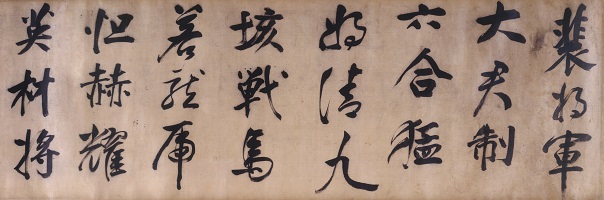 裴将軍
大君制
六合猛
将清九
垓戰馬
若龍虎
怛赫耀
英材將